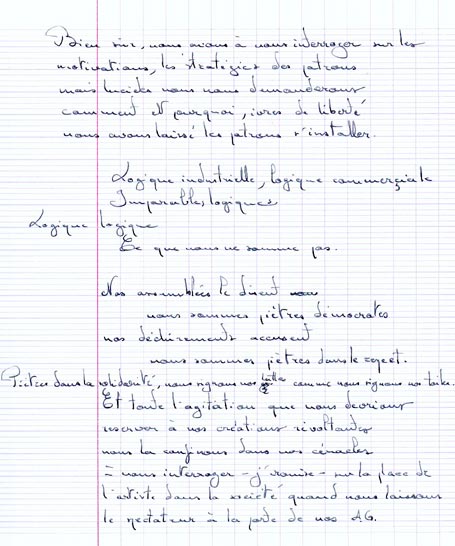 Bien sûr, nous avons à nous interroger sur les
motivations, les stratégies des patrons
mais lucides nous nous demanderons
comment et pourquoi, ivres de liberté
nous avons laissé les patrons s'installer.
Logique industrielle, logique commerciale
Imparables, logiques
Logique logique
Ce que nous ne sommes pas.
Nos assemblées le disent
nous sommes piètres démocrates
nos déchirements accusent
nous sommes piètres dans le rejet.
Piètres dans la solidarité, nous signons nos luttes comme nous signons nos toiles.
Et toute l'agitation que nous devrions
réserver à nos créations révoltantes
nous la confinons dans nos cénacles
à nous interroger - j'ironise - sur la place de
l'artiste dans la société quand nous laissons
le spectateur à la porte de nos AG.